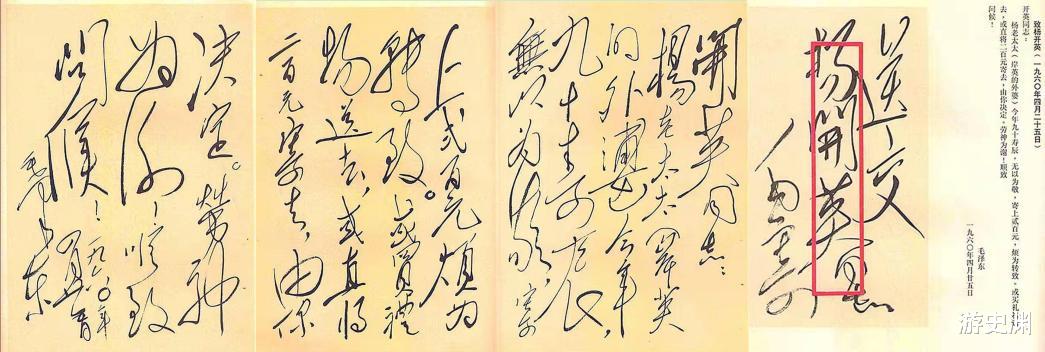 致杨开英（一九六〇年四月二十五日）
开英同志：
杨老太太（岸英的外婆）今年九十寿辰，无以为敬，寄上贰百元，烦为转致。或买礼物送
去，或直将二百元寄去，由你决定。劳神为谢！顺致
问候！
毛泽东
一九六〇年四月廿五日
送交
楊開英同志
開英同志：
楊老太太（岸英
的外婆）今年
九十寿辰，
無以为敬，寄
上弍百元，烦为
转致。或買禮
物送去，或直将
二百元寄去，由你
决定。劳神
为谢！顺致
问候！
毛泽东
一九六〇年
四月廿五日
游史渊